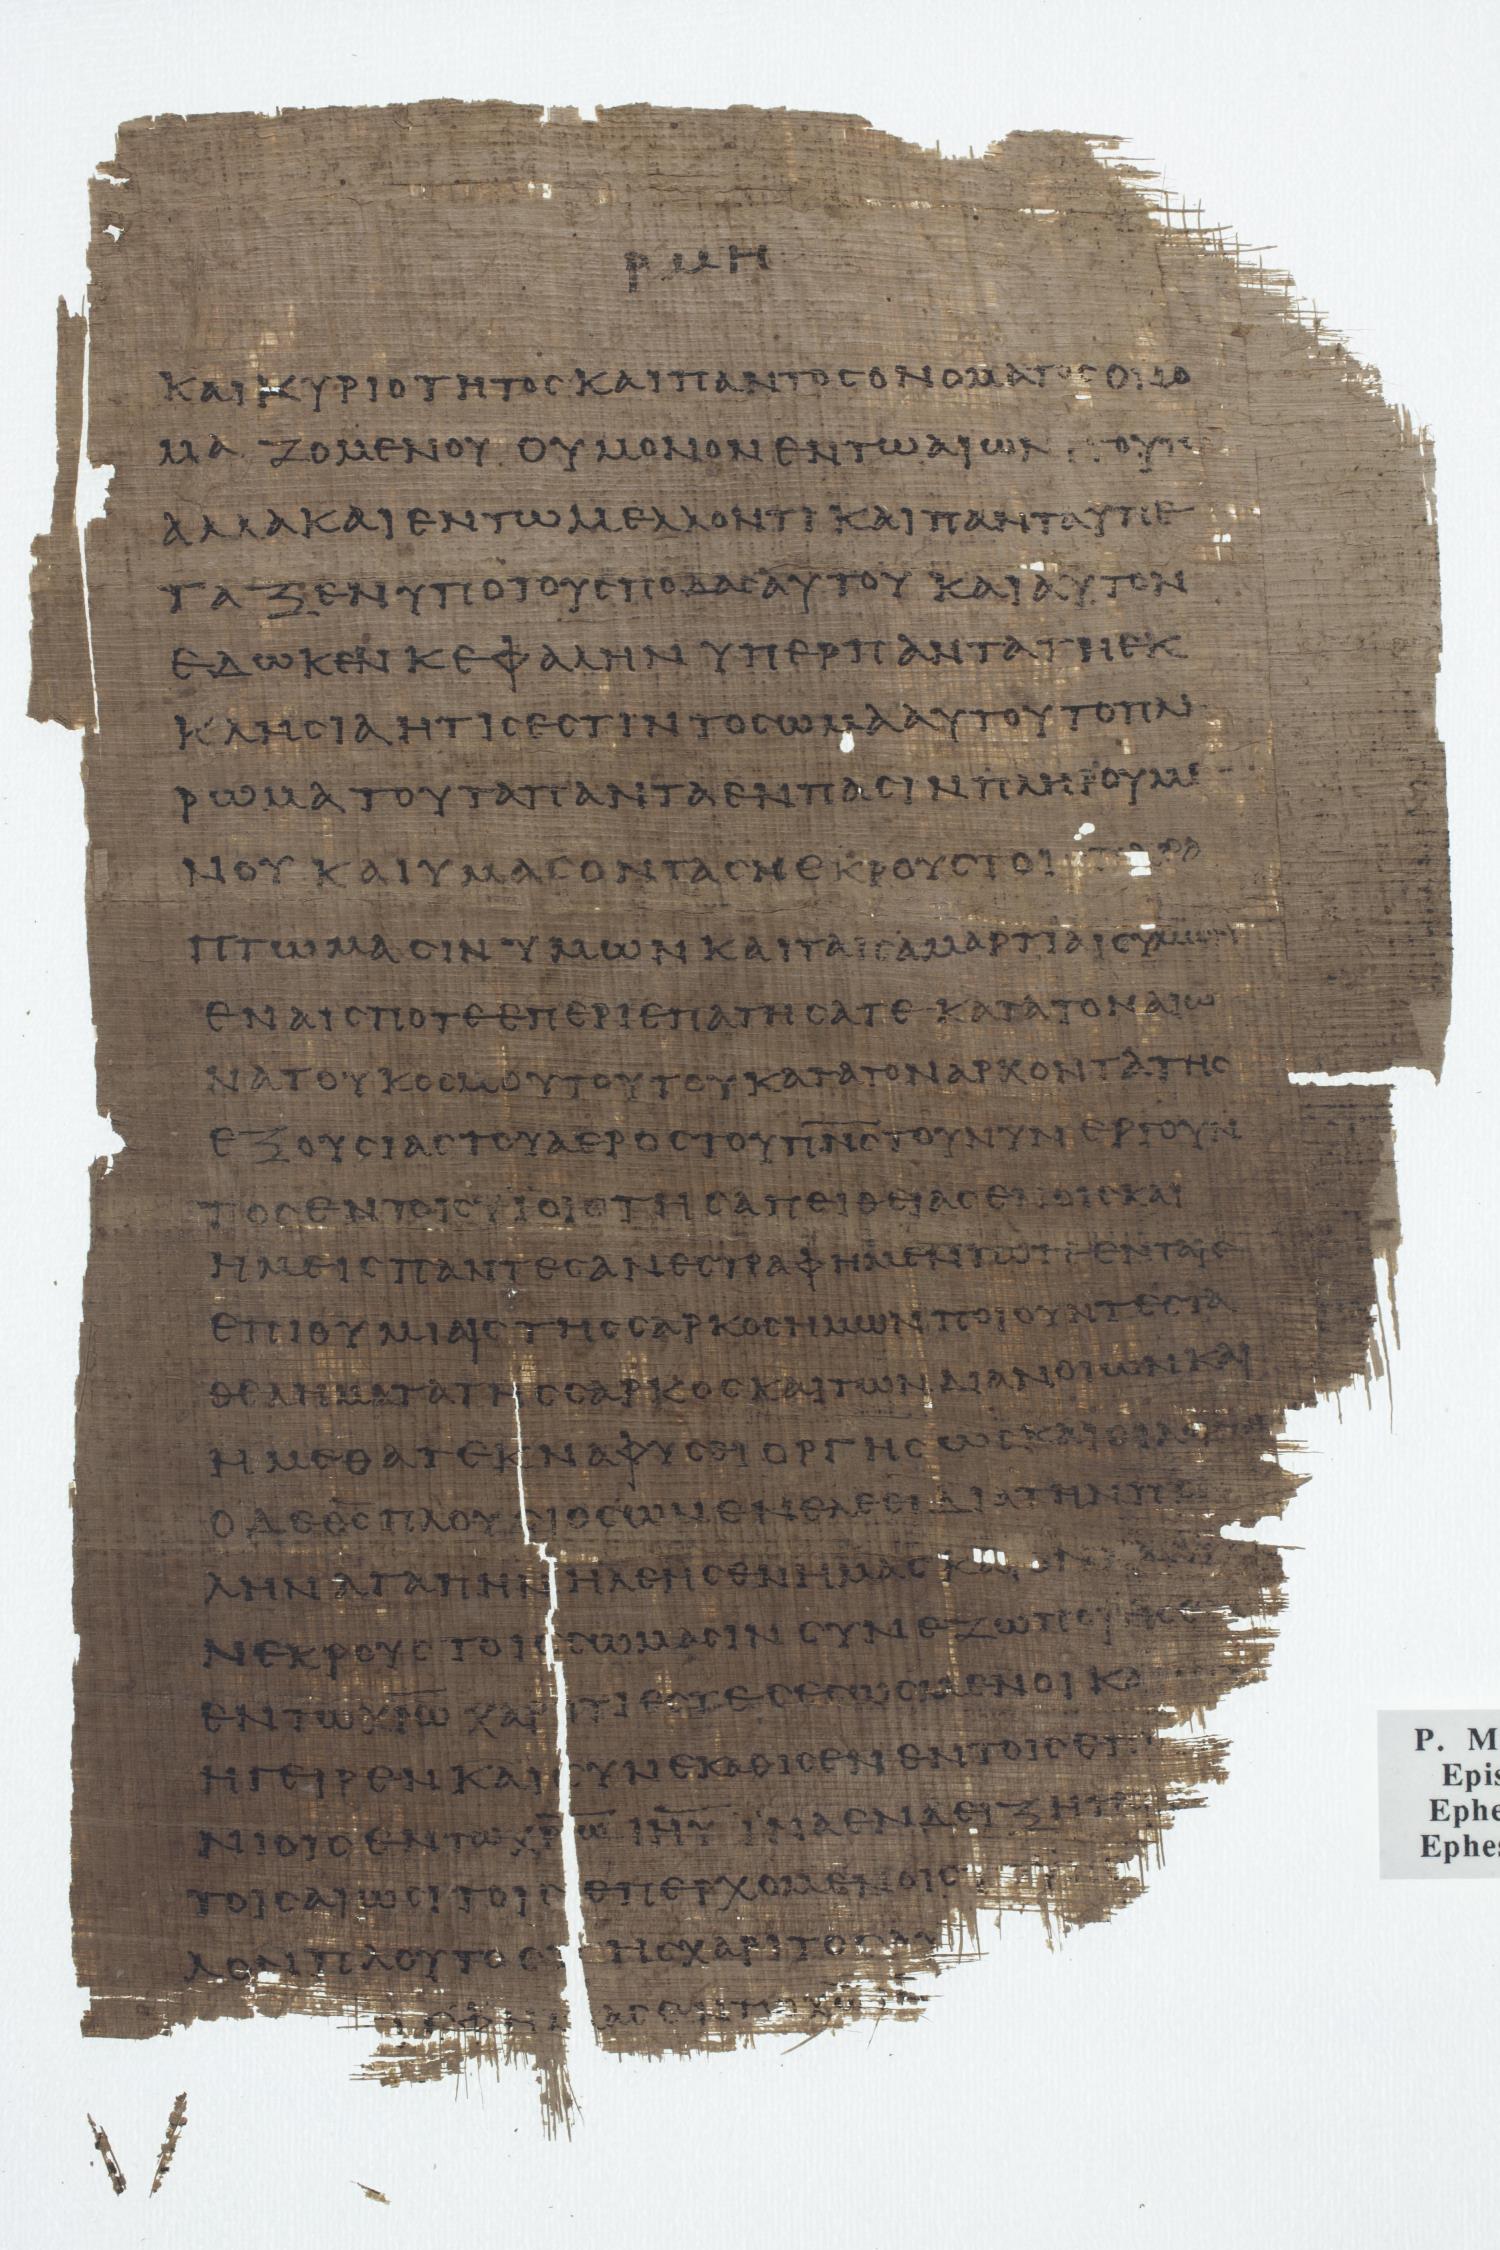 ρμη
ΚΑΙ ΚΥΡΙΟΤΗΤΟС ΚΑΙ ΠΑΝΤΟС ΟΝΟΜΑΤΟС
ΜΑ ΖΟΜΕΝΟΥ ΟΥ ΜΟΝΟΝ ΕΝ ΤΩ
ΑΛΛΑ ΚΑΙ ΕΝ ΤΩ ΜΕΛΛΟΝΤΙ ΚΑΙ ΠΑΝΤΑ ΥΠΕ
ΤΑΞΕΝ ΥΠΟ ΤΟΥС ΠΟΔΑС ΑΥΤΟΥ ΚΑΙ ΑΥΤΟΝ
ΕΔΩΚΕΝ ΚΕΦΑΛΗΝ ΥΠΕΡ ΠΑΝΤΑ ΤΗ ΕΚ
ΚΛΗСΙΑ ΗΤΙС ΕСΤΙΝ ΤΟ СΩΜΑ ΑΥΤΟΥ ΤΟ ΠΛΗ
ΡΩΜΑ ΤΟΥ ΤΑ ΠΑΝΤΑ ΕΝ ΠΑСΙΝ ΠΛΗΡΟΥΜΕ
ΝΟΥ ΚΑΙ ΥΜΑС ΟΝΤΑС ΝΕΚΡΟΥС
ΠΤΩΜΑСΙΝ ΥΜΩΝ ΚΑΙ ΤΑΙС ΑΜΑΡΤΙΑΙС ΥΜΩΝ
ΕΝ ΑΙС ΠΟΤΕ ΕΠΕΡΙΕΠΑΤΗСΑΤΕ ΚΑΤΑ ΤΟΝ ΑΙΩ
ΝΑ ΤΟΥ ΚΟСΜΟΥ ΤΟΥΤΟΥ ΚΑΤΑ ΤΟΝ ΑΡΧΟΝΤΑ ΤΗС
ΕΞΟΥСΙΑС ΤΟΥ ΑΕΡΟС ΤΟΥ Π̅Ν̅С̅ ΤΟΥ ΝΥΝ ΕΡΓΟΥΝ
ΤΟС ΕΝ ΤΟΙС ΥΙΟΙС ΤΗС ΑΠΕΙΘΕΙΑС ΕΝ ΟΙС ΚΑΙ
ΗΜΕΙС ΠΑΝΤΕС ΑΝΕСΤΡΑΦΗΜΕΝ ΠΟΤΕ ΕΝ ΤΑΙС
ΕΠΙΘΥΜΙΑΙС ΤΗС СΑΡΚΟС ΗΜΩΝ ΠΟΙΟΥΝΤΕС ΤΑ
ΘΕΛΗΜΑΤΑ ΤΗС СΑΡΚΟС ΚΑΙ ΤΩΝ ΔΙΑΝΟΙΩΝ ΚΑΙ
ΗΜΕΘΑ ΤΕΚΝΑ ΦΥСΕΙ ΟΡΓΗС ΩС ΚΑΙ ΟΙ
Ο ΔΕ Θ̅С̅ ΠΛΟΥСΙΟС ΩΝ ΕΝ ΕΛΕΕΙ ΔΙΑ ΤΗΝ
ΛΗΝ ΑΓΑΠΗΝ ΗΛΕΗСΕΝ ΗΜΑС
ΝΕΚΡΟΥС ΤΟΙС СΩΜΑСΙΝ СΥΝΕΖΩΠΟΙΗСΕΝ
ΕΝ ΤΩ Χ̅Ρ̅Ω̅ ΧΑΡΙΤΙ ΕСΤΕ СΕСΩСΜΕΝΟΙ
ΗΓΕΙΡΕΝ ΚΑΙ СΥΝΕΚΑΘΙСΕΝ ΕΝ ΤΟΙС ΕΠ
ΝΙΟΙС ΕΝ ΤΩ Χ̅Ρ̅Ω̅ Ι̅Η̅Υ̅ ΙΝΑ ΕΝΔΕΙΞΗΤΑΙ
ΤΟΙС ΑΙΩСΙ ΤΟΙС ΕΠΕΡΧΟΜΕΝΟΙС
ΛΟΝ ΠΛΟΥΤΟС ΤΗС ΧΑΡΙΤΟС
P. M
Epis
Ephe
Ephes